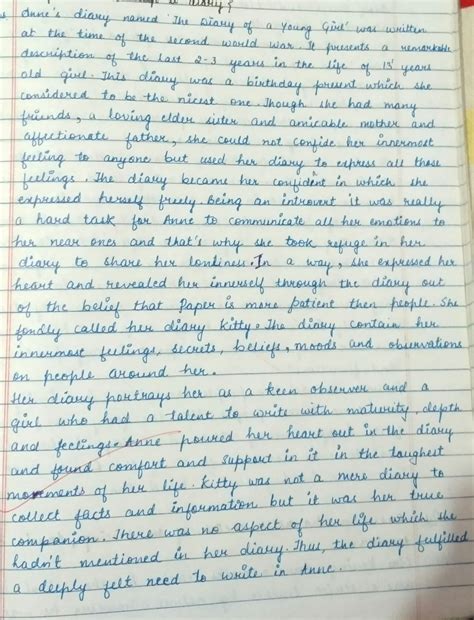 a Diary?
Anne's diary named 'The Diary of a Young Girl' was written
at the time of the second world war. It presents a remarkable
description of the last 2-3 years in the life of 13 years
old girl. This diary was a birthday present which she
considered to be the nicest one. Though she had many
friends, a loving elder sister and amicable mother and
affectionate father, she could not confide her innermost
feeling to anyone but used her diary to express all those
feelings. The diary became her confident in which she
expressed herself freely. Being an introvert it was really
a hard task for Anne to communicate all her emotions to
her near ones and that's why she took refuge in her
diary to share her lonliness. In a way, she expressed her
heart and revealed her innerself through the diary out
of the belief that Paper is more patient then people. She
fondly called her diary Kitty. The diary contain her
innermost feelings, secrets, beliefs, moods and observations
on people around her.
Her diary portrays her as a keen observer and a
girl who had a talent to write with maturity, depth
and feelings. Anne poured her heart out in the diary
and found comfort and support in it in the toughest
movements of her life. Kitty was not a mere diary to
collect facts and information but it was her true
companion. There was no aspect of her life which she
hadn't mentioned in her diary. Thus, the diary fulfilled
a deeply felt need to write in Anne.